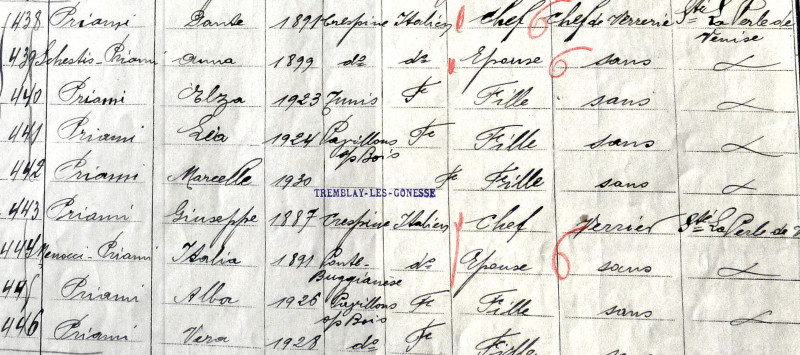 438 Priami Dante 1891 Crespina Italien Chef Chef de Verrerie Sté La Perle de Venise
439 Schestis-Priami Anna 1899 do do Epouse sans
440 Priami Elza 1923 Tunis Fe Fille sans
441 Priami Léa 1924 Pavillons s/s Bois Fe Fille sans
442 Priami Marcelle 1930 Fe Fille sans
TREMBLAY-LES-GONESSE
443 Priami Giuseppe 1887 Crespina Italien Chef Verrier Sté La Perle de V
444 Menocci-Priami Italia 1891 Ponte-Buggianese do Epouse sans
445 Priami Alba 1926 Pavillons s/s Bois Fe Fille sans
446 Priami Vera 1928 do Fe Fille sans